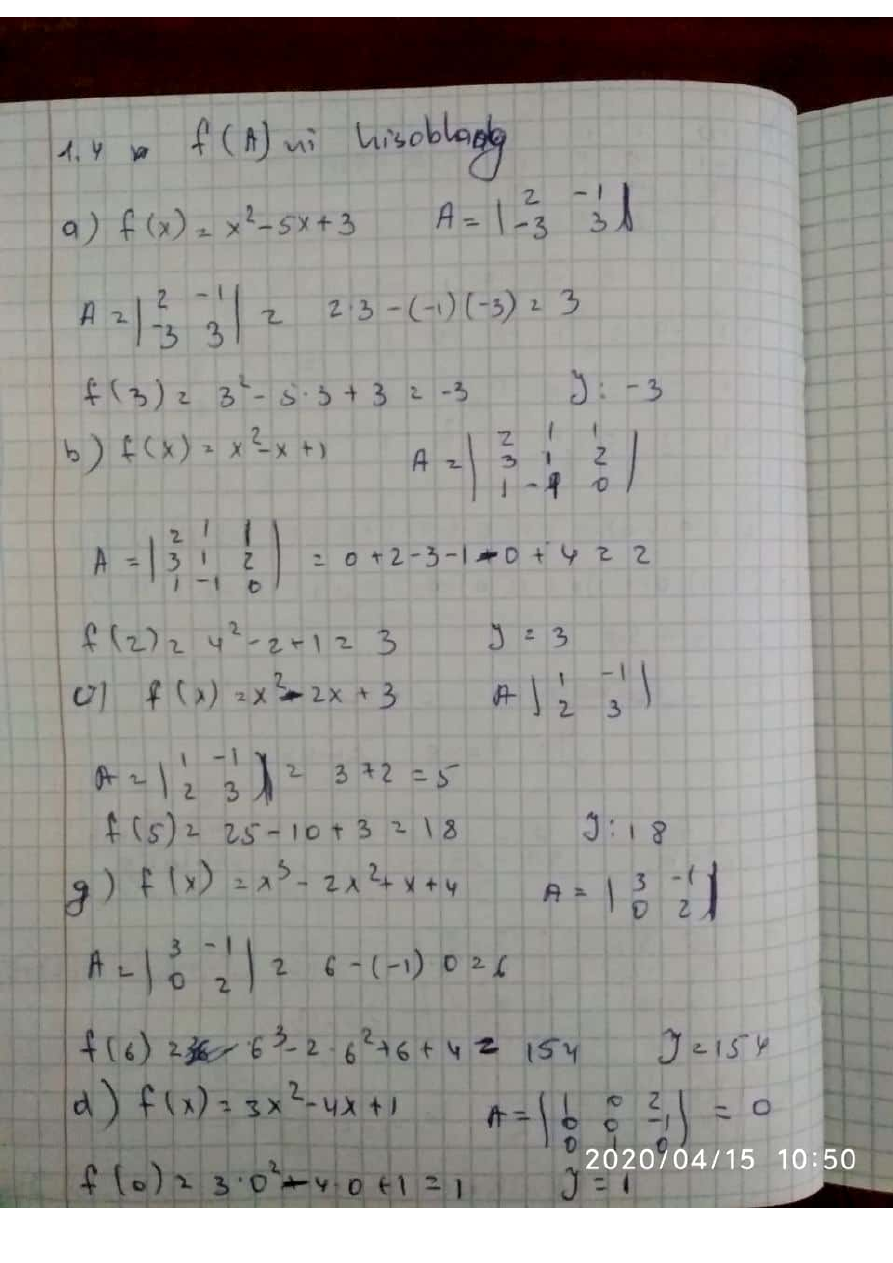 1.4 f(A) ni hisoblang
a) f(x) = x² - 5x + 3   A = | 2 -1 |
| -3 3 |
A = | 2 -1 | = 2·3 - (-1)(-3) = 3
| -3 3 |
f(3) = 3² - 5·3 + 3 = -3   J: -3
b) f(x) = x² - x + 1   A = | 2 1 1 |
| 3 1 2 |
| 1 -1 0 |
A = | 2 1 1 |
| 3 1 2 | = 0 + 2 - 3 - 1 - 0 + 4 = 2
| 1 -1 0 |
f(2) = 4² - 2 + 1 = 3   J = 3
c) f(x) = x² - 2x + 3   A | 1 -1 |
| 2 3 |
A = | 1 -1 | = 3 + 2 = 5
| 2 3 |
f(5) = 25 - 10 + 3 = 18   J: 18
g) f(x) = x³ - 2x² + x + 4   A = | 3 -1 |
| 0 2 |
A = | 3 -1 | = 6 - (-1) 0 = 6
| 0 2 |
f(6) = 6³ - 2·6² + 6 + 4 = 154   J = 154
d) f(x) = 3x² - 4x + 1   A = | 1 0 2 |
| 0 0 -1 | = 0
| 0 1 0 |
2020/04/15 10:50
f(0) = 3·0² - 4·0 + 1 = 1   J = 1